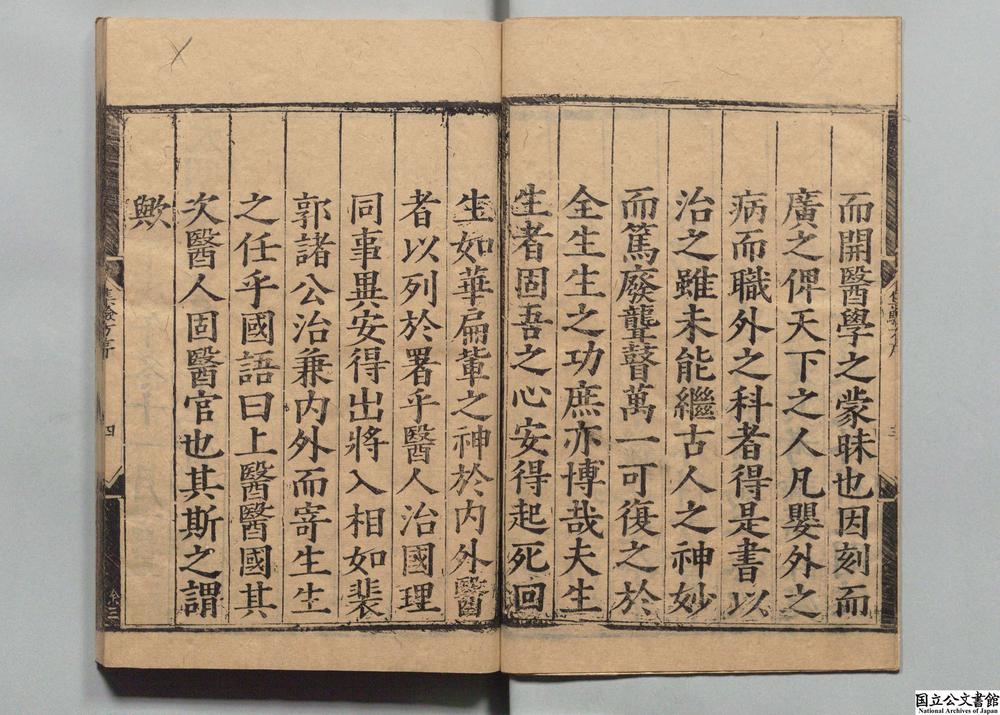 而開醫學之蒙昧也因刻而
廣之俾天下之人凡嬰外之
病而職外之科者得是書以
治之雖未能繼古人之神妙
而篤廢聾瞽萬一可復之於
全生生之功庶亦博哉夫生
生者固吾之心安得起死回
生如華扁軰之神於内外醫
者以列於署乎醫人治國理
同事異安得出將入相如裴
郭諸公治兼内外而寄生生
之任乎國語曰上醫醫國其
次醫人固醫官也其斯之謂
歟
三
四
国立公文書館
National Archives of Japan